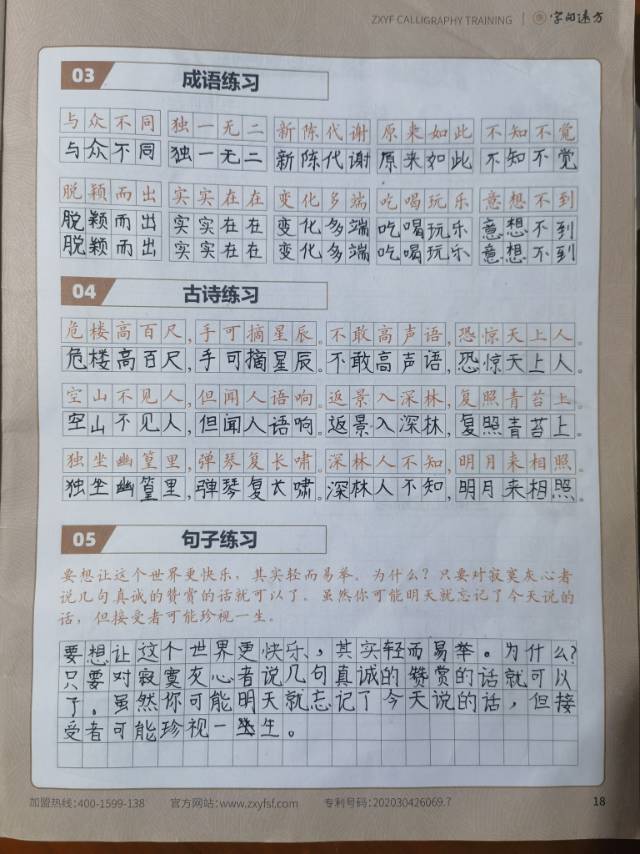 ZXYF CALLIGRAPHY TRAINING 字向远方
03 成语练习
与众不同 独一无二 新陈代谢 原来如此 不知不觉
与众不同 独一无二 新陈代谢 原来如此 不知不觉
脱颖而出 实实在在 变化多端 吃喝玩乐 意想不到
脱颖而出 实实在在 变化多端 吃喝玩乐 意想不到
脱颖而出 实实在在 变化多端 吃喝玩乐 意想不到
04 古诗练习
危楼高百尺,手可摘星辰。不敢高声语,恐惊天上人。
危楼高百尺,手可摘星辰。不敢高声语,恐惊天上人。
空山不见人,但闻人语响。返景入深林,复照青苔上。
空山不见人,但闻人语响。返景入深林,复照青苔上。
独坐幽篁里,弹琴复长啸。深林人不知,明月来相照。
独坐幽篁里,弹琴复长啸。深林人不知,明月来相照。
05 句子练习
要想让这个世界更快乐,其实轻而易举。为什么?只要对寂寞灰心者
说几句真诚的赞赏的话就可以了。虽然你可能明天就忘记了今天说的
话,但接受者可能珍视一生。
要想让这个世界更快乐,其实轻而易举。为什么?
只要对寂寞灰心者说几句真诚的赞赏的话就可以
了。虽然你可能明天就忘记了今天说的话,但接
受者可能珍视一生。
加盟热线:400-1599-138 官方网站:www.zxyfsf.com 专利号码:202030426069.7 18